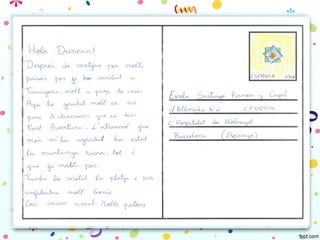 Hola Duncan!
Després de viatjar per molts
països per fi he arribat a
Tarragona, molt a prop de casa.
Aquí he gaudit molt en un
parc d'atraccions que es diu
Port Aventura. L'atracció que
més m'ha agradat ha estat
la muntanya russa, tot i
que fa molta por.
També he visitat la platja i un
amfiteatre molt bonic.
Ens veiem aviat. Molts petons
ESPAÑA
Escola Santiago Ramón y Cajal
c/ Albereda
L'Hospitalet de Llobregat
Barcelona (Espanya)
fppt.com